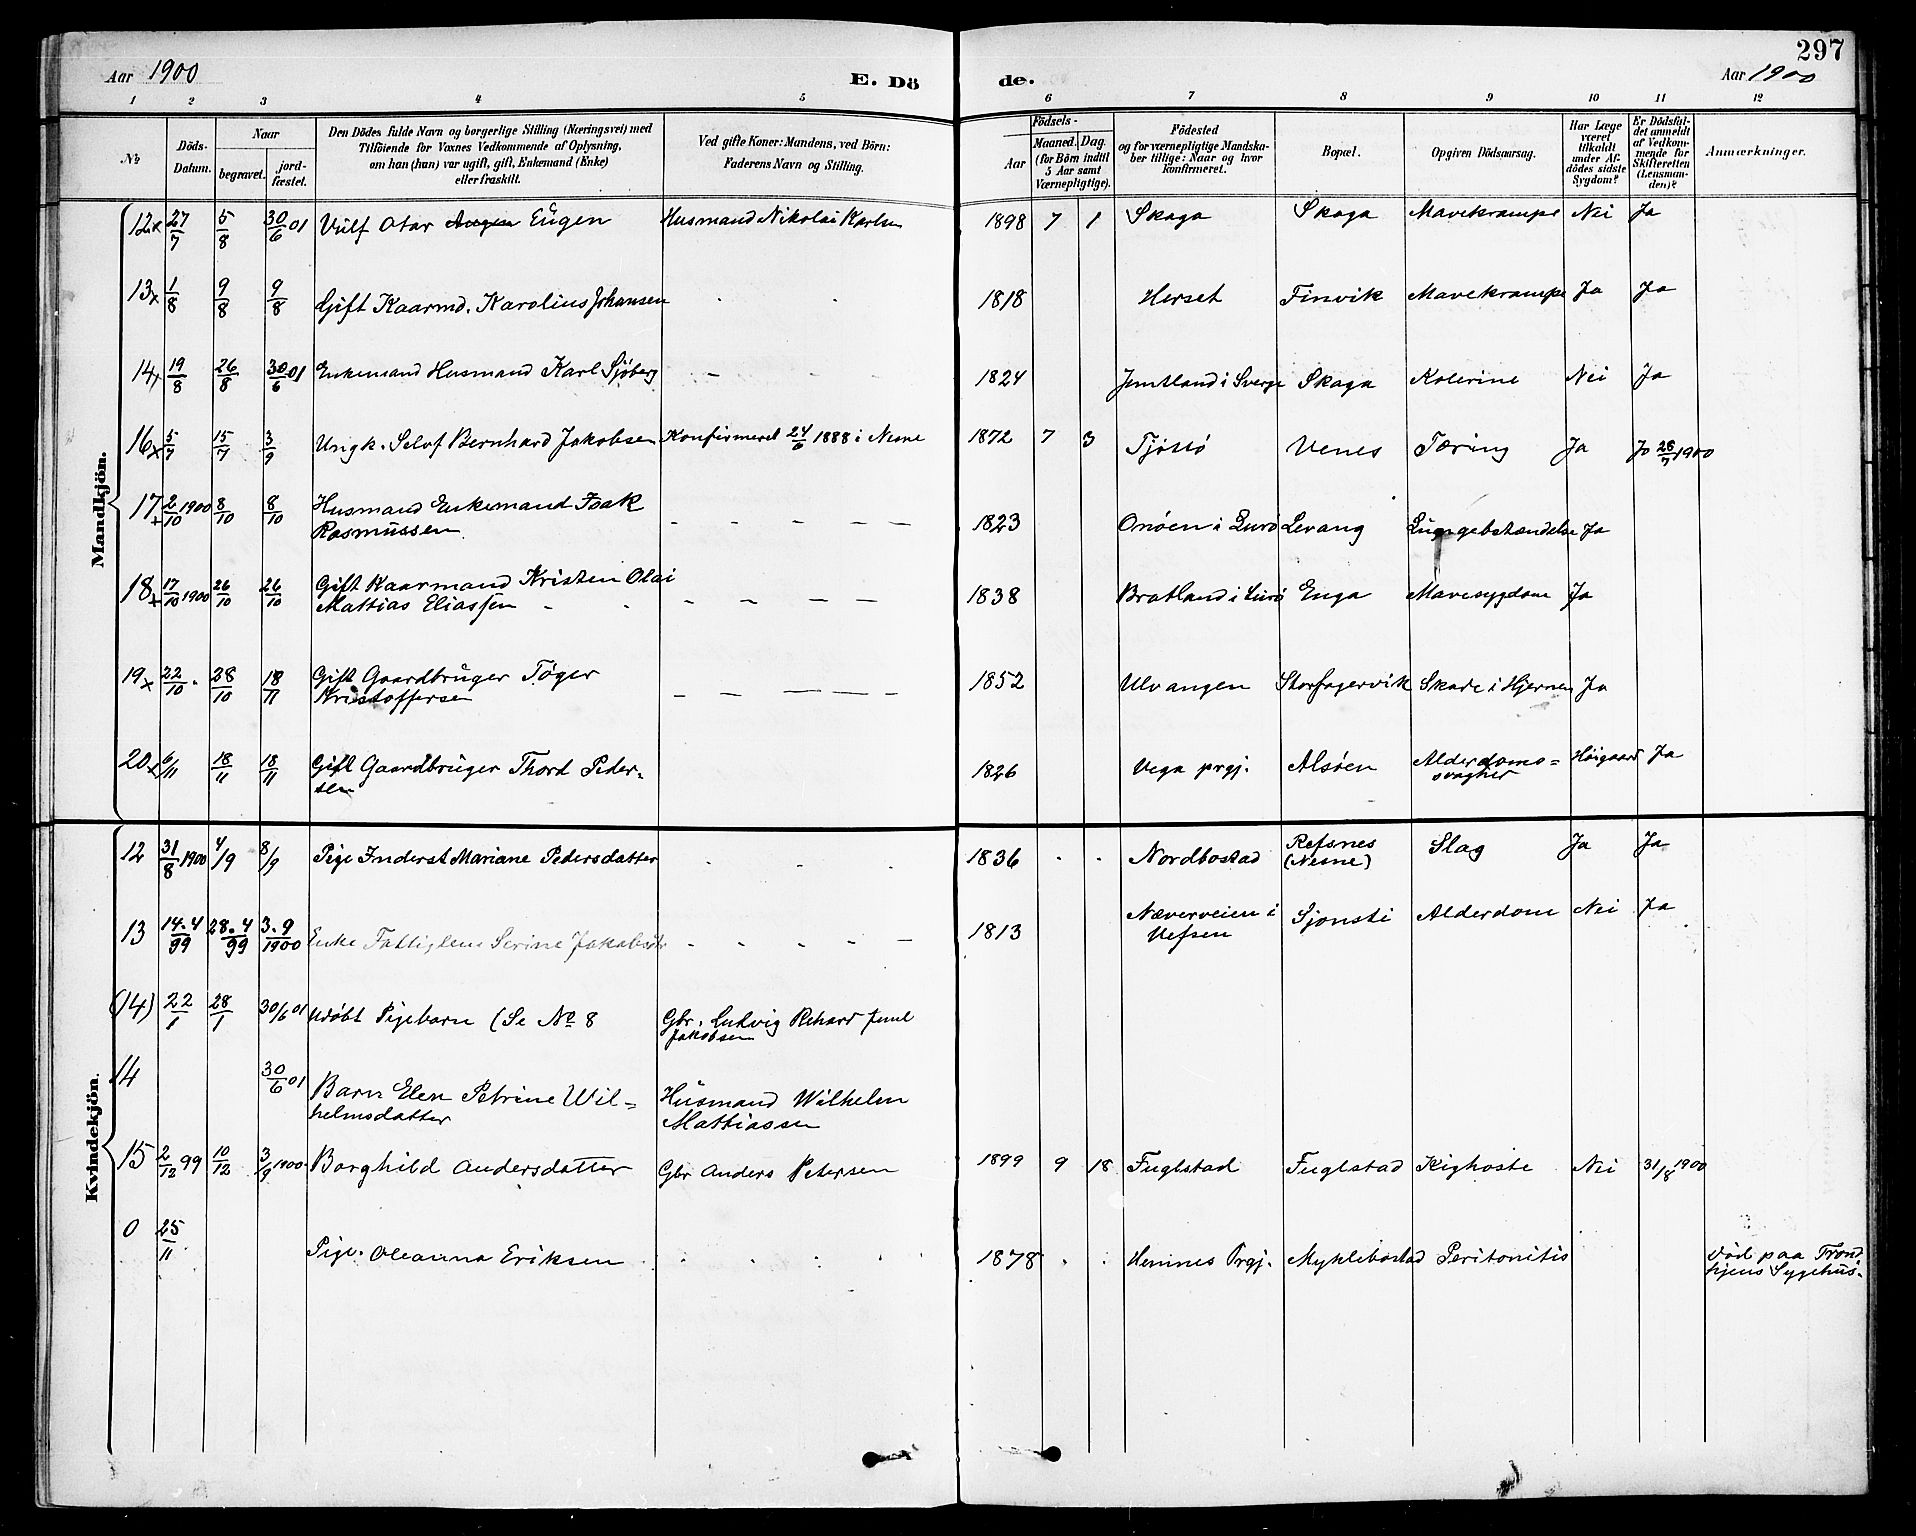 297
Aar 1900 E. Dö de. Aar 1900
1 2 3 4 5 6 7 8 9 10 11 12
№
Döds-Datum.
Naar
begravet.
jord-fæstet.
Den Dödes fulde Navn og borgerlige Stilling (Næringsvei) med
Tilföiende for Voxnes Vedkommende af Oplysning,
om han (hun) var ugift, gift, Enkemand (Enke)
eller fraskilt.
Ved gifte Koner: Mandens, ved Börn:
Faderens Navn og Stilling.
Födsels-
Aar
Maaned. Dag.
(for Börn indtil
5 Aar samt
Værnepligtige).
Födested
og for værnepligtige Mandska-
ber tillige: Naar og hvor
konfirmeret.
Bopæl.
Opgiven Dödsaarsag.
Har Læge
været
tilkaldt
under Af-
dödes sidste
Sygdom?
Er Dödsfal-
det anmeldt
af Vedkom-
mende for
Skifteretten
(Lensman-
den)?
Anmærkninger.
Mandkjön.
12x 27/7 5/8 30/6 01 Vulf Otar Eugen Husmand Nikolai Karlsen 1898 7 1 Skoga Skoga Mavekrampe Nei Ja
13x 1/8 9/8 9/8 Gift Kaarmd. Karolius Johansen 1818 Herset Finvik Mavekrampe Ja Ja
14x 19/8 26/8 30/6 01 Enkemand Husmand Karl Sjøberg - - - 1824 Jemtland i Sverge Skoga Kolerine Nei Ja
16x 5/7 15/7 3/9 Ungk. Selvf Bernhard Jakobsen Konfirmeret 24/6 1888 i Nesne 1872 7 3 Tjøtø Venes Tæring Ja Ja 28/7 1900
17x 2/10 1900 8/10 8/10 Husmand Enkemand Isak
Rasmussen - - - - - 1823 Onøen i Lurø Levang Lungebetændelse Ja
18x 17/10 1900 26/10 26/10 Gift Kaarmand Kristen Olai
Mattias Eliassen - - - - 1838 Bratland i Lurø Enga Mavesygdom Ja
19x 22/10 28/10 18/11 Gift Gaardbruger Tøger
Kristoffersen - - - - - 1852 Ulvangen Storfagervik Skade i Hjernen Ja
20x 6/11 18/11 18/11 Gift Gaardbruger Thord Peder-
sen 1826 Vega prgj. Alsøen Alderdoms-
svaghed Høigaard Ja
Kvindekjön.
12 31/8 1900 4/9 8/9 Pige Inderst Mariane Pedersdatter 1836 Nordbostad Refsnes
(Nesne) Slag Ja Ja
13 14.4/99 28.4/99 3.9/1900 Enke Fattiglem Serine Jakobsdtr 1813 Næverveien i
Vefsen Sjonsti Alderdom Nei Ja
(14) 22/1 28/1 30/6 01 Udøbt Pigebarn (Se No 8 Gbr. Ludvig Rikard Juul
Jakobsen
14 30/6 01 Barn Elen Petrine Wil-
helmsdatter Husmand Wilhelm
Mattiassen
15 2/12 99 10/12 3/9 1900 Borghild Andersdatter Gbr Anders Petersen 1899 9 18 Fuglstad Fuglstad Kighoste Nei 31/8 1900
0 25/11 Pige. Oleanna Eriksen 1878 Hemnes Prgj. Myklebostad Peritonitis Død paa Trond
hjems Sygehus.